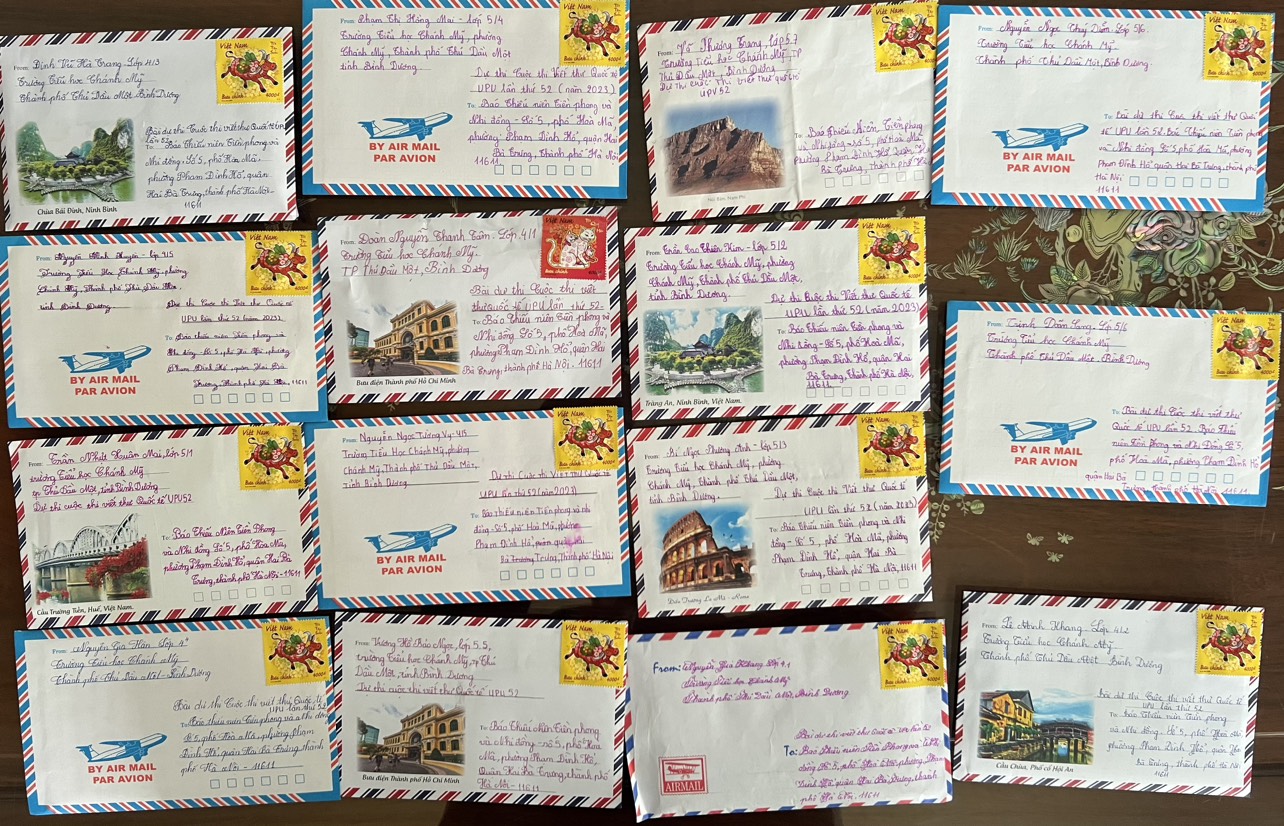 From: Đinh Vũ Hà Trang Lớp 4/3
Trường Tiểu học Chánh Mỹ
Thành phố Thủ Dầu Một Bình Dương
Việt Nam
Bưu chính 4000đ
Bài dự thi Cuộc thi viết thư Quốc tế UPU
lần 52
To: Báo Thiếu niên Tiền phong và
Nhi đồng - Số 5, phố Hòa Mã,
phường Phạm Đình Hổ, quận
Hai Bà Trưng, thành phố Hà Nội -
11611
Chùa Bái Đính, Ninh Bình
From: Phạm Thị Hồng Mai - lớp 5/4
Trường Tiểu học Chánh Mỹ, phường
Chánh Mỹ, Thành phố Thủ Dầu Một
tỉnh Bình Dương
Việt Nam
Bưu chính 4000đ
Dự thi Cuộc thi Viết thư Quốc tế
UPU lần thứ 52 (năm 2023)
To: Báo Thiếu niên Tiền phong và
Nhi đồng - số 5, phố Hoà Mã
phường Phạm Đình Hổ, quận Hai
Bà Trưng, Thành phố Hà Nội
11611
BY AIR MAIL
PAR AVION
From: Võ Phương Trang, lớp 5.7
Trường Tiểu học Chánh Mỹ, TP
Thủ Dầu Một, Bình Dương
Dự thi cuộc thi viết thư quốc tế
UPU 52
Việt Nam
Bưu chính 4000đ
To: Báo Thiếu Niên Tiền phong
và Nhi đồng số 5, phố Hoà Mã
phường Phạm Đình Hổ, quận Hai
Bà Trưng, Thành phố Hà
From: Nguyễn Ngọc Thúy Diễm Lớp 5/6
Trường Tiểu học Chánh Mỹ
Thành phố Thủ Dầu Một, Bình Dương
Việt Nam
Bưu chính 4000đ
To:
tế UPU lần 52 Báo Thiếu Niên Tiền phong
và Nhi đồng Số 5, phố Hoà Mã, phường
Phạm Đình Hổ quận Hai Bà Trưng, thành phố
Hà Nội
11611
BY AIR MAIL
PAR AVION
From: Nguyễn Minh - lớp 4/5
Trường Tiểu học Chánh Mỹ, phường
Chánh Mỹ, Thành phố Thủ Dầu Một
tỉnh Bình Dương
Việt Nam
Bưu chính 4000đ
Dự thi Cuộc thi Viết thư Quốc tế
UPU lần thứ 52 (năm 2023)
To: Báo Thiếu niên Tiền phong và
Nhi đồng - số 5, phố Hòa Mã, phường
Phạm Đình Hổ, quận Hai Bà
Trưng, Thành phố Hà Nội, 11611
BY AIR MAIL
PAR AVION
From: Đoàn Nguyễn Thanh Tâm - Lớp 4/1
Trường Tiểu học Chánh Mỹ
TP Thủ Dầu Một, Bình Dương
Việt Nam
Bưu chính
Bài dự thi Cuộc thi viết
thư quốc tế UPU lần thứ 52.
To: Báo Thiếu niên Tiền phong và
Nhi đồng Số 5, phố Hoà Mã,
phường Phạm Đình Hổ, quận Hai
Bà Trưng, thành phố Hà Nội, 11611
Bưu điện Thành phố Hồ Chí Minh
From: Trần Cao Thiên Kim - lớp 5/2
Trường Tiểu học Chánh Mỹ, phường
Chánh Mỹ, Thành phố Thủ Dầu Một,
tỉnh Bình Dương.
Việt Nam
Bưu chính 4000đ
Dự thi Cuộc thi Viết thư Quốc tế
UPU lần thứ 52 (năm 2023)
To: Báo Thiếu niên Tiền phong và
Nhi đồng - số 5, phố Hoà Mã,
phường Phạm Đình Hổ, quận Hai
Bà Trưng, Thành phố Hà Nội,
11611
Tràng An, Ninh Bình, Việt Nam.
From: Trịnh Dân Lớp 5/6
Trường Tiểu học Chánh Mỹ
Thành phố Thủ Dầu Một, Bình Dương
Việt Nam
Bưu chính 4000đ
To: Bài dự thi Cuộc thi viết thư
Quốc tế UPU lần 52 Báo Thiếu
niên Tiền phong và Nhi Đồng Số 5,
phố Hoà Mã, phường Phạm Đình Hổ
quận Hai Bà
Trưng thành phố Hà Nội 11611
BY AIR MAIL
PAR AVION
From: Trần Nhật Xuân Mai, lớp 5/1
trường Tiểu học Chánh Mỹ
tp Thủ Dầu Một, tỉnh Bình Dương
Dự thi cuộc thi viết thư Quốc tế UPU52
Việt Nam
Bưu chính 4000đ
To: Báo Thiếu Niên Tiền Phong
và Nhi đồng Số 5, phố Hoà Mã,
phường Phạm Đình Hổ, quận Hai Bà
Trưng, thành phố Hà Nội - 11611
Cầu Trường Tiền, Huế, Việt Nam.
From: Nguyễn Ngọc Tường Vy - 4/5
Trường Tiểu Học Chánh Mỹ, phường
Chánh Mỹ, Thành phố Thủ Dầu Một,
tỉnh Bình Dương
Việt Nam
Bưu chính 4000đ
Dự thi Cuộc thi Viết thư Quốc tế
UPU lần thứ 52 (năm 2023)
To: Báo Thiếu niên Tiền phong và Nhi
đồng - Số 5, phố Hoà Mã, phường
Phạm Đình Hổ, quận Hai
Bà Trưng Trưng, Thành phố Hà Nội
BY AIR MAIL
PAR AVION
From: Ngọc Phương Anh - lớp 5/3
Trường Tiểu học Chánh Mỹ, phường
Chánh Mỹ, Thành phố Thủ Dầu Một,
tỉnh Bình Dương.
Việt Nam
Bưu chính 4000đ
Dự thi Cuộc thi Viết thư Quốc tế
UPU lần thứ 52 (năm 2023)
To: Báo Thiếu niên Tiền phong và Nhi
đồng - Số 5, phố Hoà Mã, phường
Phạm Đình Hổ, quận Hai Bà
Trưng, Thành phố Hà Nội, 11611
Đấu Trường La Mã - Rome
From: Nguyễn Gia Hân Lớp 4
Trường Tiểu học Chánh Mỹ
Thành phố Thủ Dầu Một - Bình Dương
Việt Nam
Bưu chính 4000đ
Bài dự thi Cuộc thi viết thư Quốc tế
UPU lần thứ 52
To: Báo thiếu niên Tiền phong và nhi đồng
số 5, phố Hoà Mã, phường Phạm
Đình Hổ, quận Hai Bà Trưng, thành
phố Hà Nội - 11611
BY AIR MAIL
PAR AVION
From: Vương Hồ Bảo Ngọc, lớp 5.5,
trường Tiểu học Chánh Mỹ, tp Thủ
Dầu Một, tỉnh Bình Dương
Dự thi cuộc thi viết thư Quốc tế UPU 52
Việt Nam
Bưu chính 4000đ
To: Báo Thiếu niên Tiền phong
và Nhi đồng - số 5, phố Hoà
Mã, phường Phạm Đình Hổ,
Quận Hai Bà Trưng, thành phố
Hà Nội - 11611
Bưu điện Thành phố Hồ Chí Minh
From: Nguyễn Khang Lớp 4.1
Trường Tiểu học Chánh Mỹ
Thành phố Thủ Dầu Một, Bình Dương
Việt Nam
Bưu chính 4000đ
Bài dự thi viết thư Quốc tế UPU lần 52
To: Báo Thiếu niên Tiền Phong và Nhi
đồng Số 5, phố Hoà Mã, phường Phạm
Đình Hổ quận Hai Bà Trưng, thành
phố Hà Nội, 11611
AIRMAIL
From: Lê Minh Khang - Lớp 4/2
Trường Tiểu học Chánh Mỹ
Thành phố Thủ Dầu Một Bình Dương
Việt Nam
Bưu chính 4000đ
Bài dự thi Cuộc thi viết thư Quốc tế
UPU lần thứ 52
To: báo Thiếu niên Tiền phong
và Nhi đồng, Số 5, phố Hoà Mã
phường Phạm Đình Hổ, quận Hai
Bà Trưng, thành phố Hà Nội
11611
Cầu Chùa, Phố cổ Hội An